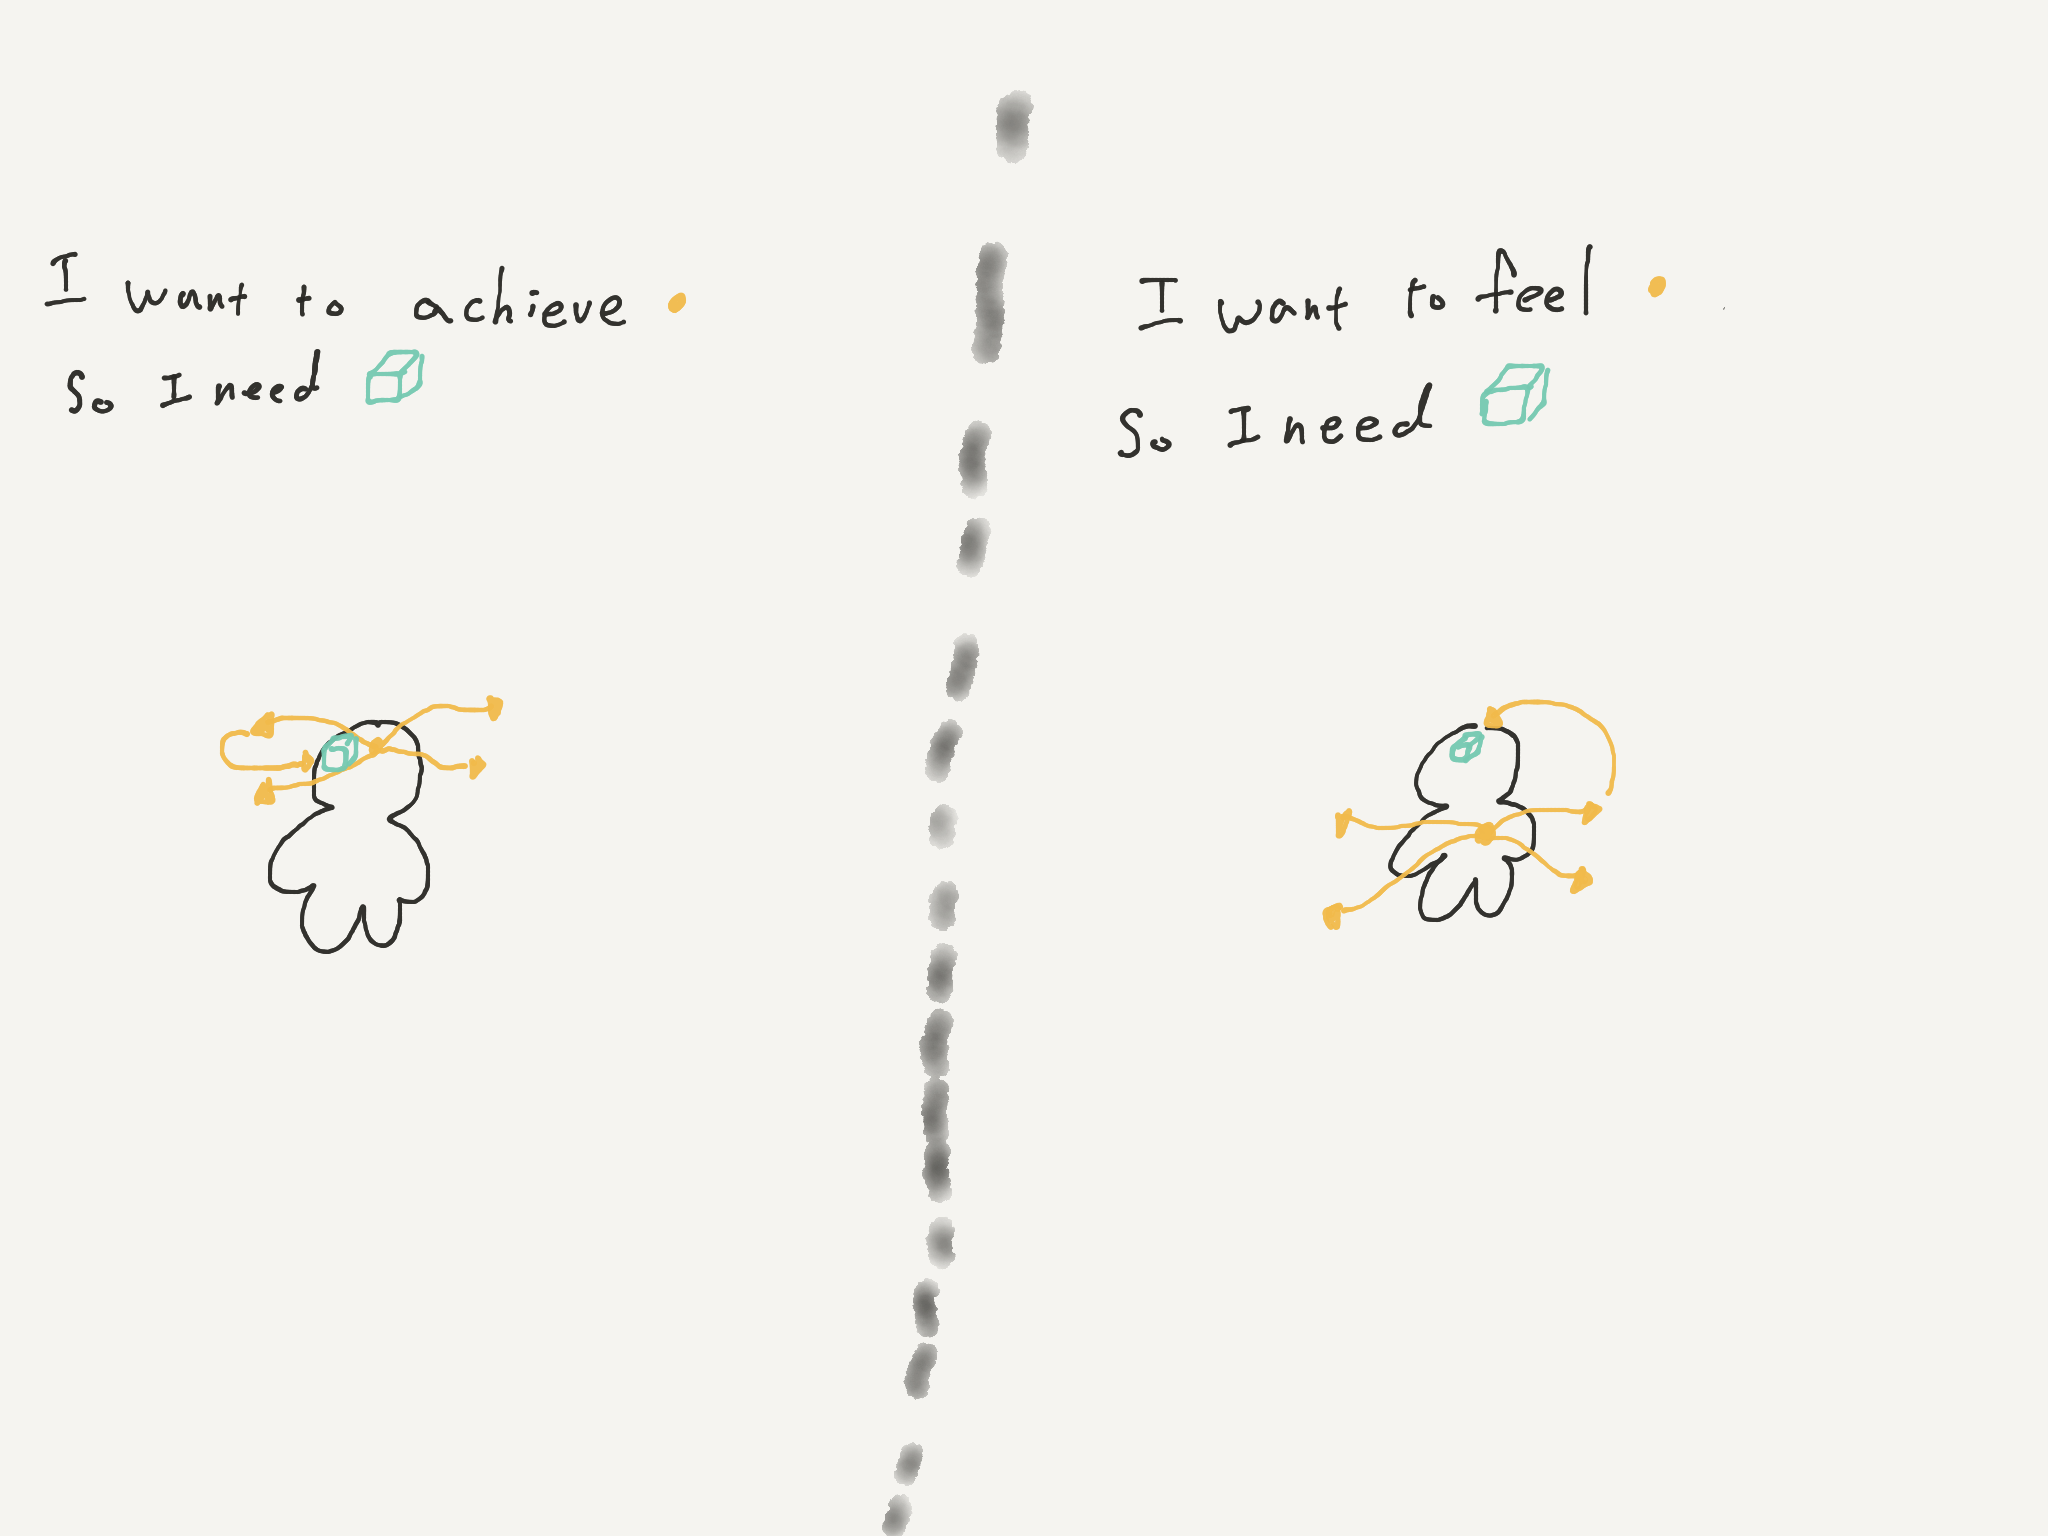 I want to achieve
So I need
I want to feel
So I need